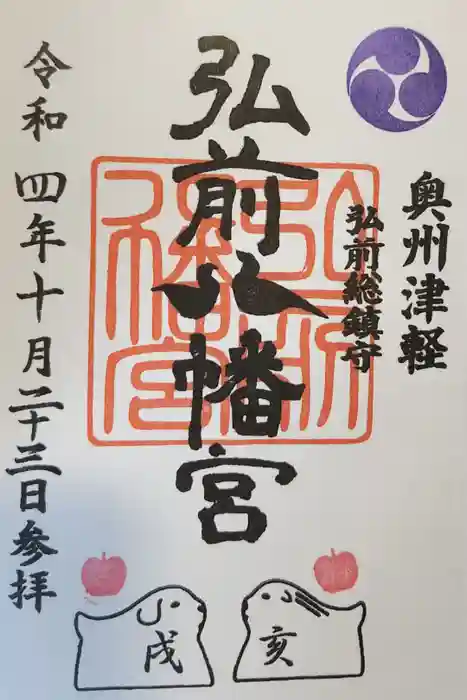 奥州津軽
弘前総鎮守
弘前八幡宮
弘前八幡宮
令和四年十月二十三日参拝
戌
亥